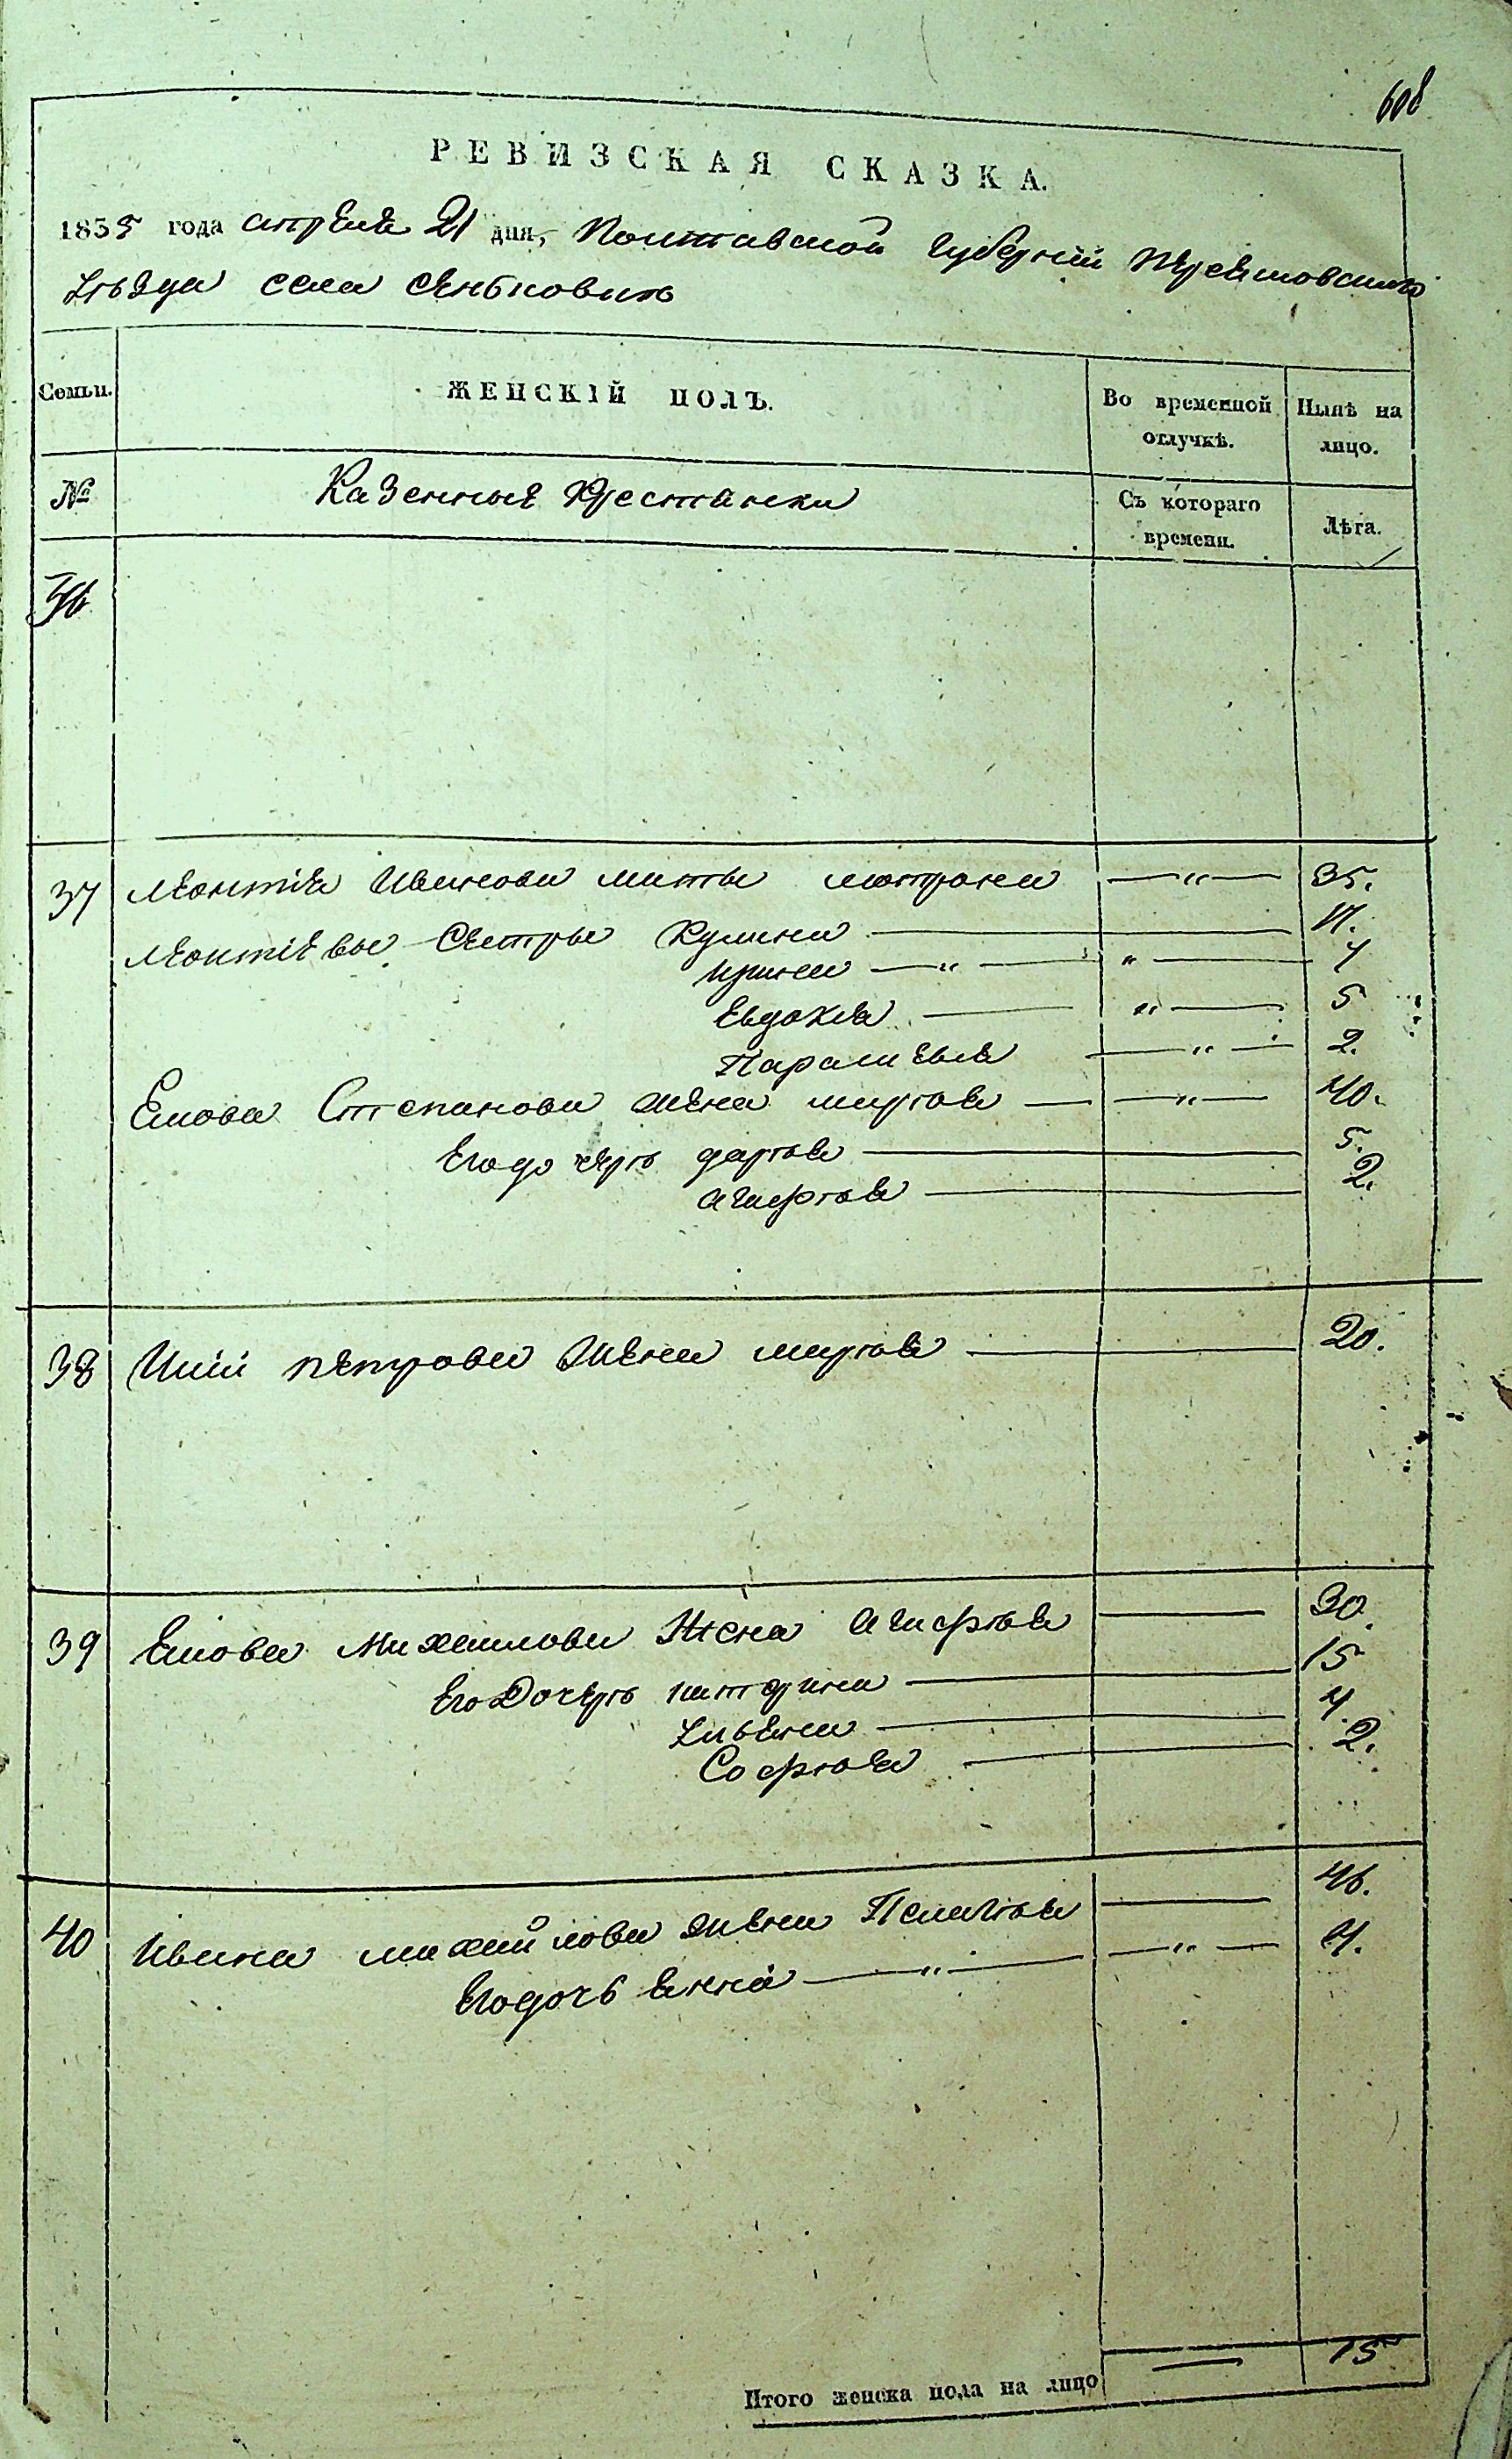 608
РЕВИЗСКАЯ СКАЗКА.
1835 года апреля 21 дня, Полтавской Губернии Переяловского
уезда села
Семьи. ЖЕНСКІЙ ПОЛЪ. Во временной отлучкѣ. Нынѣ на лицо.
№ Казенные крестьянки Съ котораго времени. Лѣта.
36
37 Леонтія Иванова мать мотрона — " — 35.
Леонтіевы Сестры Кулина — 11.
ирина — " — " — 7
Евдокия — " — 5
Параскевия — " — 2.
Якова Степанова жена марья — " — 40.
Его дочерь дарья — 5.
агафья — 2.
38 петрова жена марья — 20.
39 Якова Михаилова Жена агафья — 30.
Его Дочерь катерина — 15
Ульяна — 4.
Софья — 2.
40 Ивана михайлова жена Пелагья — 46.
Его дочь анна — " — " — 4.
Итого женска пола на лицо — 15